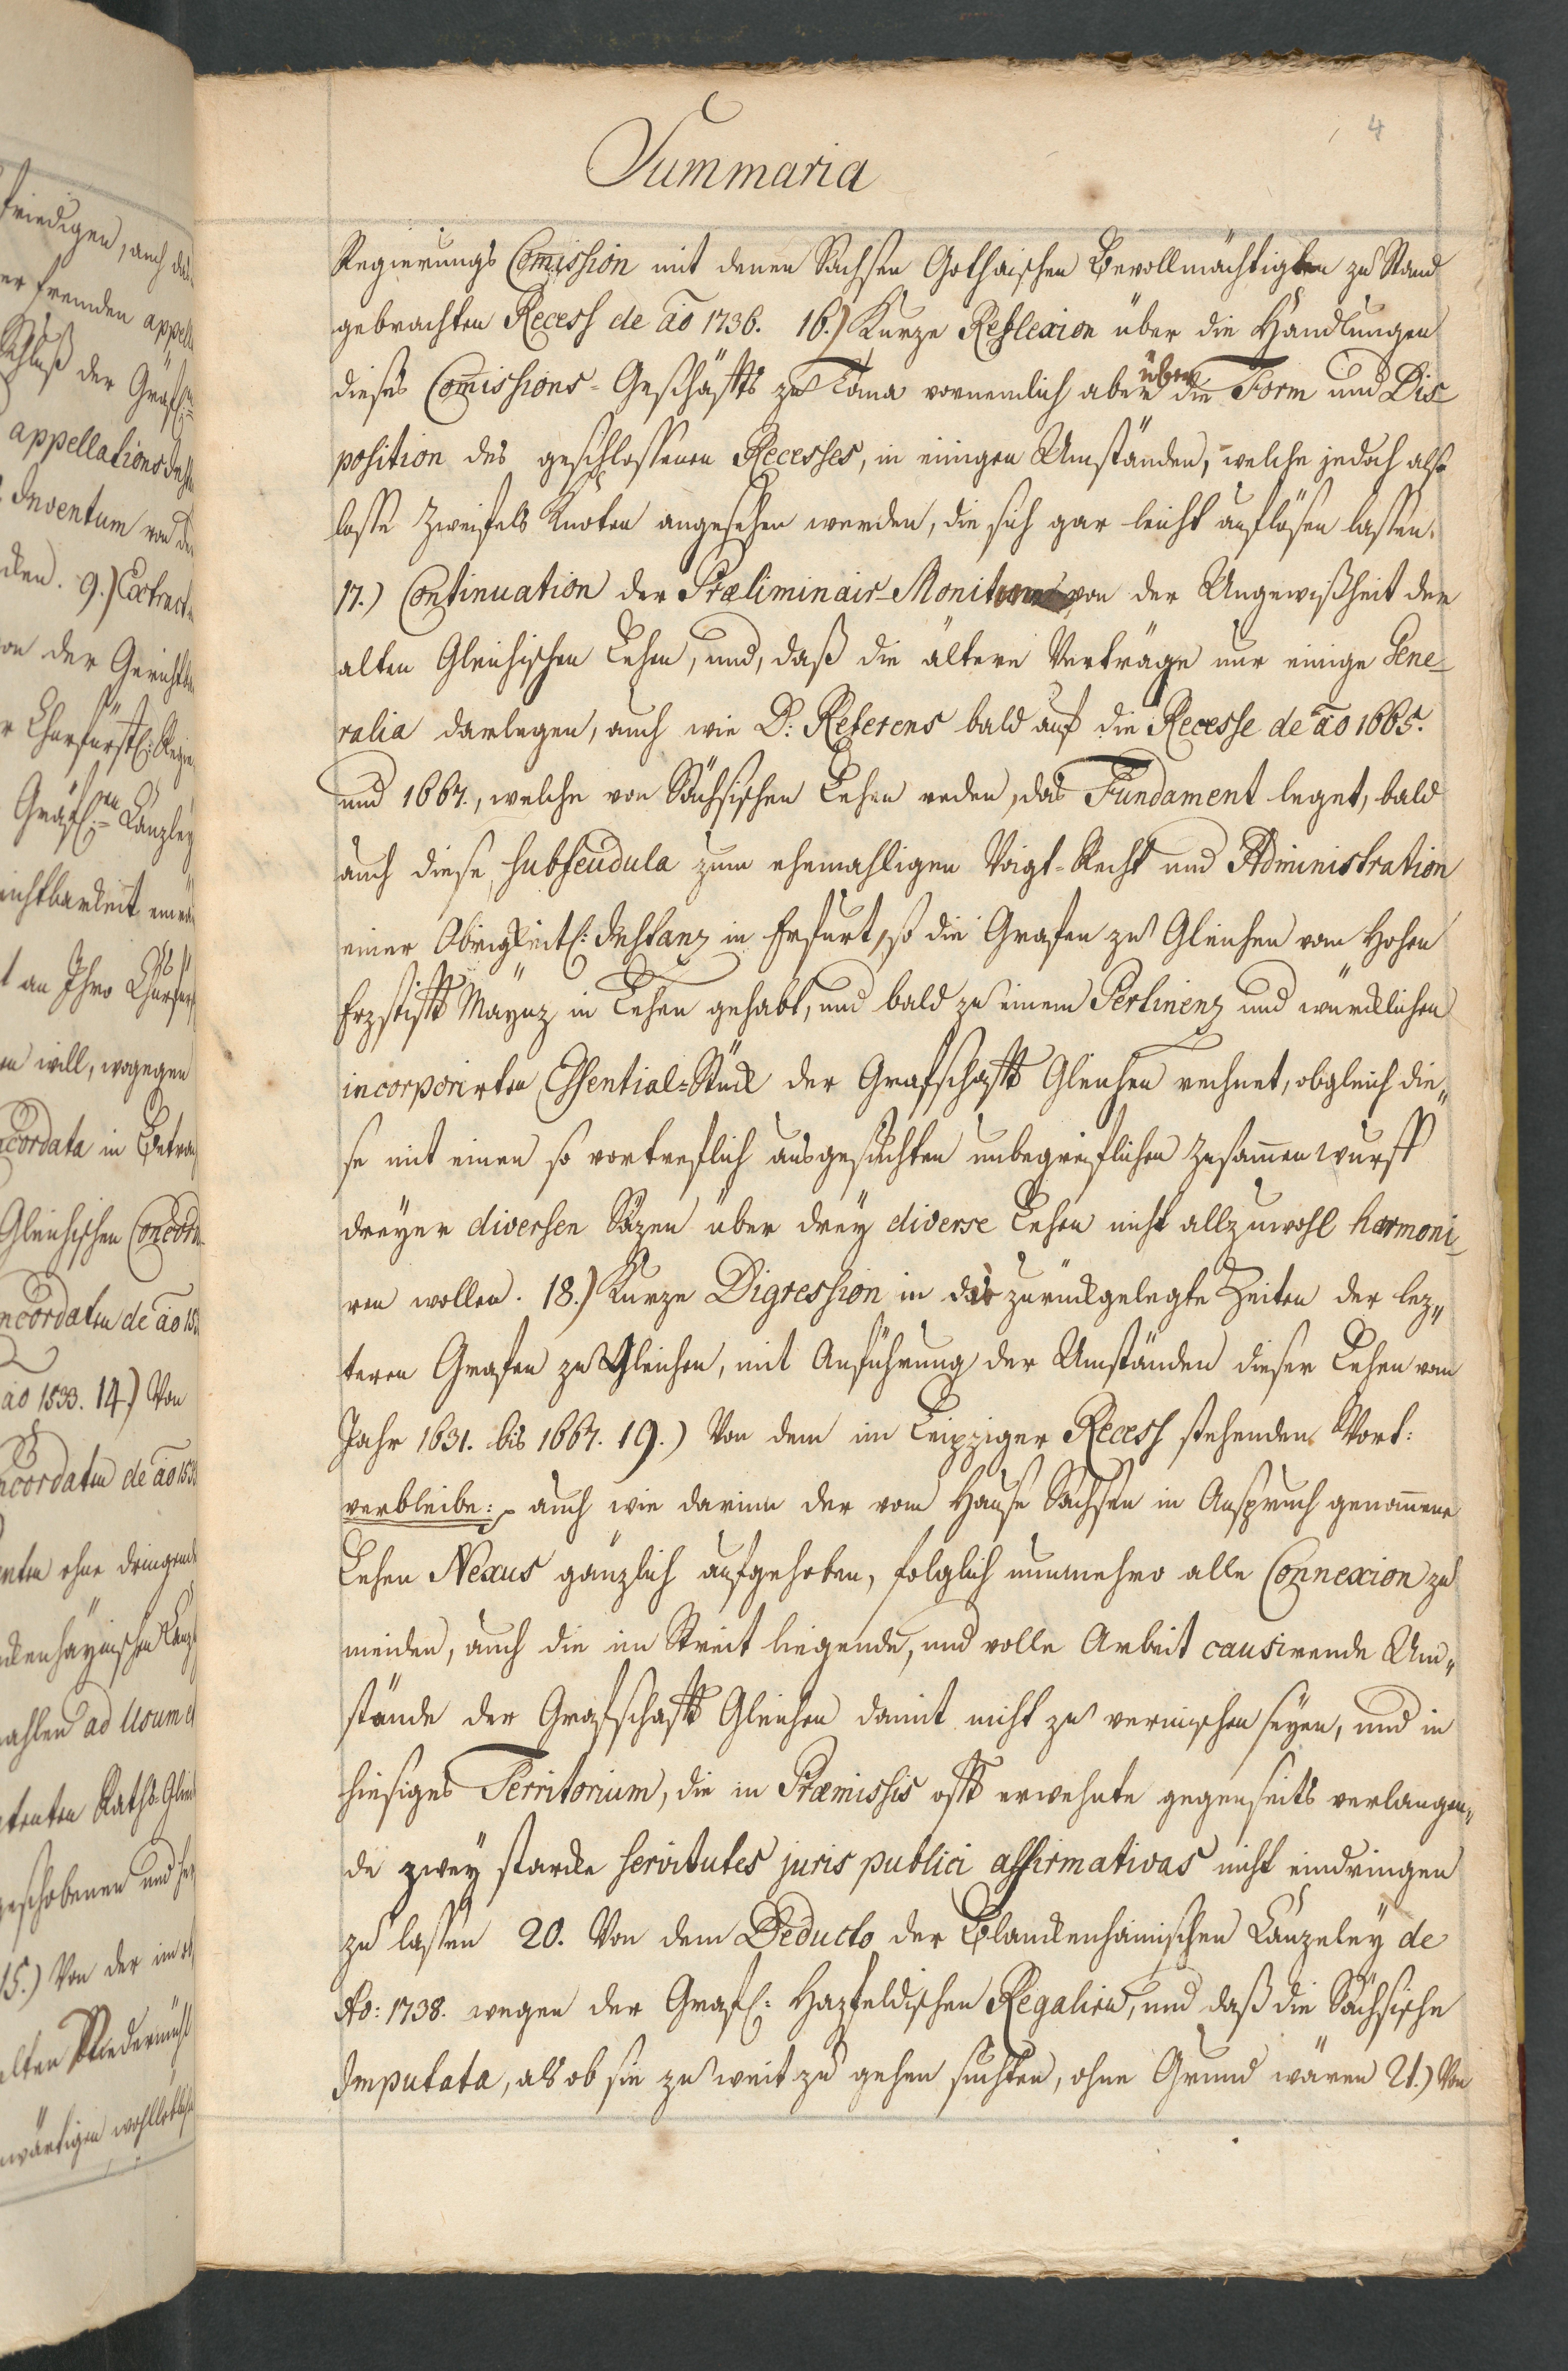 4
Summaria
Regierungs Com̄ission mit denen Sachsen Gothaischen Bevollmächtigten zu Stand
gebrachten Recess de ao 1736. 16.) Kurze Reflexion über die Handlungen
dieses Com̄issions-Geschäffts zu Tona vornemlich aber über die Form und Dis-
position des geschlossenen Recesses, in einigen Umständen, welche jedoch als
lose Zweifels Knoten angesehen werden, die sich gar leicht auflösen lassen.
17.) Continuation der Præliminair-Monitorum von der Ungewißheit der
alten Gleichischen Lehen, und, daß die ältere Verträge nur einige Gene-
ralia darlegen, auch wie D: Referens bald auf die Recesse de ao 1665.
und 1667., welche von Sächsischen Lehen reden, das Fundament leget, bald
auch diese subfeudula zum ehemahligen Voigt-Recht und Administration
einer Obrigkeitl: Instanz in Erfurt, so die Grafen zu Gleichen vom Hohen
Erzstifft Maynz in Lehen gehabt, und bald zu einem Pertinenz und würcklichen
incorporirten Essential-Stück der Grafschafft Gleichen rechnet, obgleich die„
se mit einen so vortreflich ausgesuchten unbegreiflichen Zusam̄enwurff
dreyer diversen Säzen über drey diverse Lehen nicht allzuwohl harmoni-
ren wollen. 18.) Kurze Digression in die zurückgelegte Zeiten der lez„
teren Grafen zu Gleichen, mit Anführung der Umständen dieser Lehen vom
Jahr 1631. bis 1667. 19.) Von dem im Leipziger Recess stehenden Wort:
verbleibe: auch wie darinn der vom Hause Sachsen in Anspruch genom̄ene
Lehen Nexus gänzlich aufgehoben, folglich nunmehro alle Connexion zu
meiden, auch die im Streit liegende, und volle Arbeit causirende Um„
stände der Grafschafft Gleichen damit nicht zu vermischen seyen, und in
hiesiges Territorium, die in Præmissis offt erwehnte gegenseits verlangen„
de zwey starcke servitutes juris publici affirmativas nicht eindringen
zu lassen 20. Von dem Deducto der Blanckenhainischen Canzeley de
Ao: 1738. wegen der Gräfl: Hazfeldischen Regalien, und daß die Sächsische
Imputata, als ob sie zu weit zu gehen suchten, ohne Grund wären 21.) Von